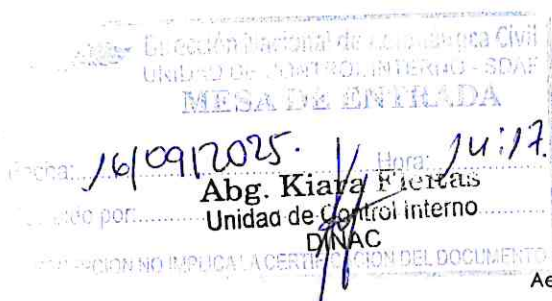 Dirección Nacional de Aeronáutica Civil
UNIDAD DE CONTROL INTERNO - SDAF
MESA DE ENTRADA
Fecha: 16/09/2025. Hora: 14:17.
Abg. Kiara Fleitas
por:
Unidad de Control Interno
DINAC
NO IMPLICA LA CERTIFICACION DEL DOCUMENTO
Ae